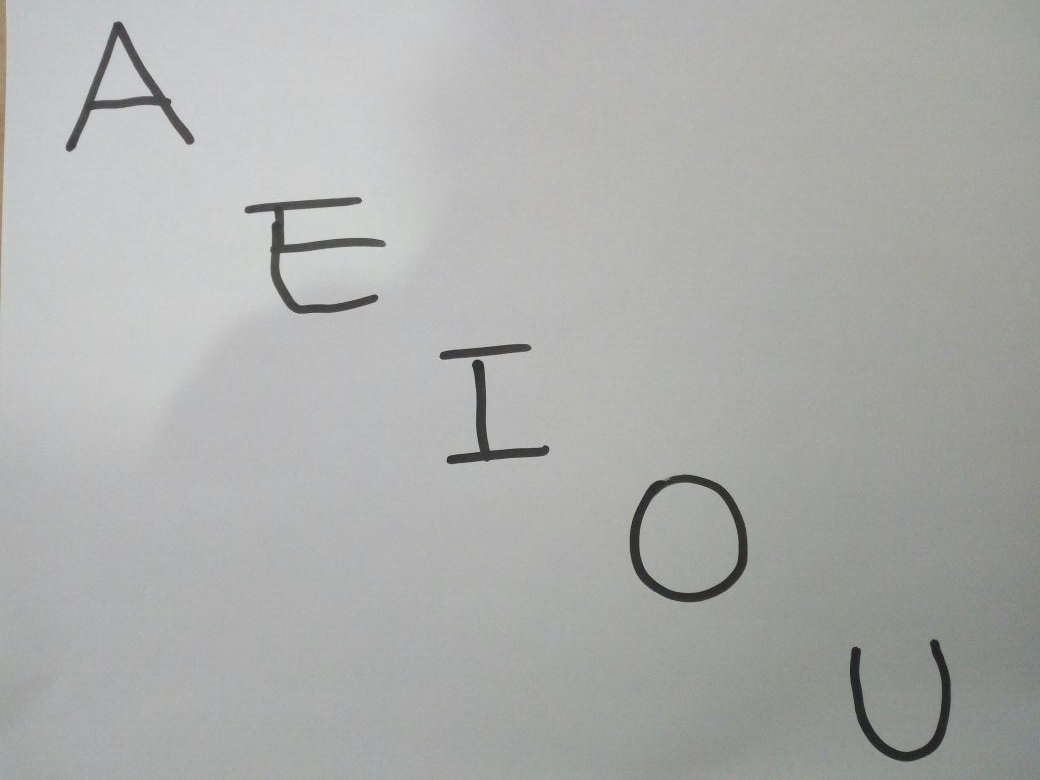 A
E
I
O
U